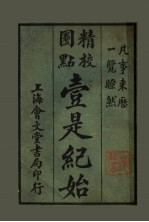 凡事來歷
一覽瞭然
精校
圈點
壹是紀始
上海會文堂書局印行